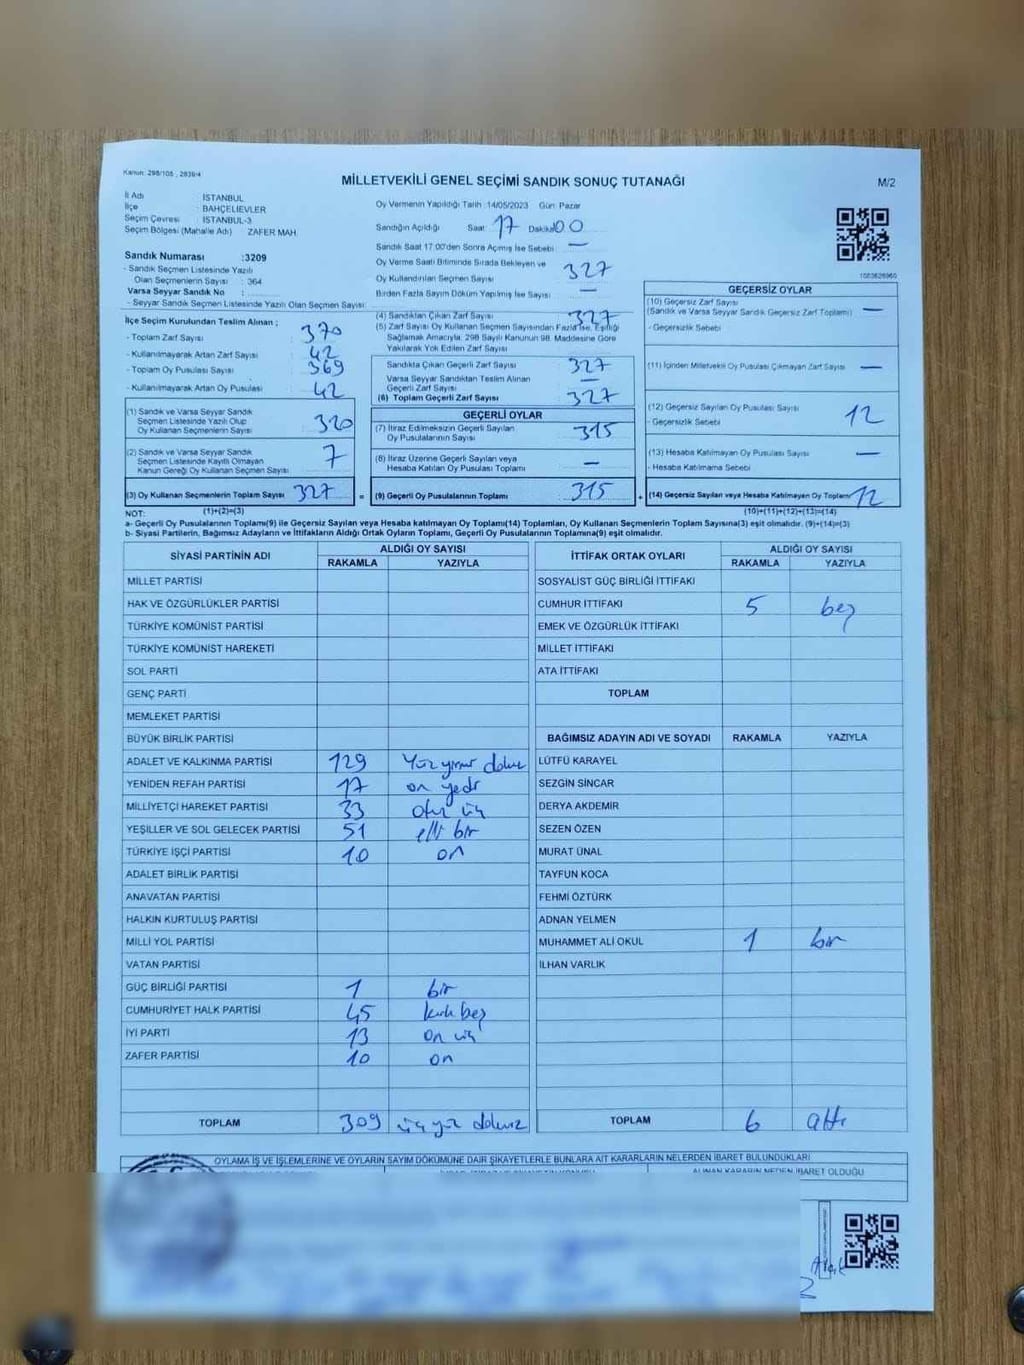 Kanun: 298/105 , 2839/4
MİLLETVEKİLİ GENEL SEÇİMİ SANDIK SONUÇ TUTANAĞI
M/2
İl Adı : İSTANBUL
İlçe : BAHÇELİEVLER
Seçim Çevresi : İSTANBUL-3
Seçim Bölgesi (Mahalle Adı) ZAFER MAH.
Sandık Numarası :3209
- Sandık Seçmen Listesinde Yazılı
Olan Seçmenlerin Sayısı : 364
Varsa Seyyar Sandık No :
- Seyyar Sandık Seçmen Listesinde Yazılı Olan Seçmen Sayısı:
Oy Vermenin Yapıldığı Tarih :14/05/2023 Gün: Pazar
Sandığın Açıldığı Saat: 17 Dakika: 00
Sandık Saat 17:00'den Sonra Açımış İse Sebebi: —
Oy Verme Saati Bitiminde Sırada Bekleyen ve
Oy Kullandırılan Seçmen Sayısı 327
Birden Fazla Sayım Döküm Yapılmış İse Sayısı : —
1083626960
İlçe Seçim Kurulundan Teslim Alınan ;
- Toplam Zarf Sayısı : 370
- Kullanılmayarak Artan Zarf Sayısı : 42
- Toplam Oy Pusulası Sayısı : 369
- Kullanılmayarak Artan Oy Pusulası : 42
(1) Sandık ve Varsa Seyyar Sandık
Seçmen Listesinde Yazılı Olup
Oy Kullanan Seçmenlerin Sayısı : 320
(2) Sandık ve Varsa Seyyar Sandık
Seçmen Listesinde Kayıtlı Olmayan
Kanun Gereği Oy Kullanan Seçmen Sayısı : 7
(3) Oy Kullanan Seçmenlerin Toplam Sayısı 327
(1)+(2)=(3)
(4) Sandıktan Çıkan Zarf Sayısı : 327
(5) Zarf Sayısı Oy Kullanan Seçmen Sayısından Fazla İse, Eşitliği
Sağlamak Amacıyla, 298 Sayılı Kanunun 98. Maddesine Göre
Yakılarak Yok Edilen Zarf Sayısı
Sandıkta Çıkan Geçerli Zarf Sayısı : 327
Varsa Seyyar Sandıktan Teslim Alınan
Geçerli Zarf Sayısı : —
(6) Toplam Geçerli Zarf Sayısı : 327
GEÇERLİ OYLAR
(7) İtiraz Edilmeksizin Geçerli Sayılan
Oy Pusulalarının Sayısı : 315
(8) İtiraz Üzerine Geçerli Sayılan veya
Hesaba Katılan Oy Pusulası Toplamı : —
= (9) Geçerli Oy Pusulalarının Toplamı : 315
GEÇERSİZ OYLAR
(10) Geçersiz Zarf Sayısı
(Sandık ve Varsa Seyyar Sandık Geçersiz Zarf Toplamı) : —
- Geçersizlik Sebebi
(11) İçinden Milletvekili Oy Pusulası Çıkmayan Zarf Sayısı : —
(12) Geçersiz Sayılan Oy Pusulası Sayısı : 12
- Geçersizlik Sebebi
(13) Hesaba Katılmayan Oy Pusulası Sayısı : —
- Hesaba Katılmama Sebebi
+ (14) Geçersiz Sayılan veya Hesaba Katılmayan Oy Toplamı 12
(10)+(11)+(12)+(13)=(14)
NOT:
a- Geçerli Oy Pusulalarının Toplamı(9) ile Geçersiz Sayılan veya Hesaba katılmayan Oy Toplamı(14) Toplamları, Oy Kullanan Seçmenlerin Toplam Sayısına(3) eşit olmalıdır. (9)+(14)=(3)
b- Siyasi Partilerin, Bağımsız Adayların ve İttifakların Aldığı Ortak Oyların Toplamı, Geçerli Oy Pusulalarının Toplamına(9) eşit olmalıdır.
SİYASİ PARTİNİN ADI ALDIĞI OY SAYISI
RAKAMLA YAZIYLA
MİLLET PARTİSİ
HAK VE ÖZGÜRLÜKLER PARTİSİ
TÜRKİYE KOMÜNİST PARTİSİ
TÜRKİYE KOMÜNİST HAREKETİ
SOL PARTİ
GENÇ PARTİ
MEMLEKET PARTİSİ
BÜYÜK BİRLİK PARTİSİ
ADALET VE KALKINMA PARTİSİ 129 Yüz yirmi dokuz
YENİDEN REFAH PARTİSİ 17 on yedi
MİLLİYETÇİ HAREKET PARTİSİ 33 otuz üç
YEŞİLLER VE SOL GELECEK PARTİSİ 51 elli bir
TÜRKİYE İŞÇİ PARTİSİ 10 on
ADALET BİRLİK PARTİSİ
ANAVATAN PARTİSİ
HALKIN KURTULUŞ PARTİSİ
MİLLİ YOL PARTİSİ
VATAN PARTİSİ
GÜÇ BİRLİĞİ PARTİSİ 1 bir
CUMHURİYET HALK PARTİSİ 45 kırk beş
İYİ PARTİ 13 on üç
ZAFER PARTİSİ 10 on
TOPLAM 309 üç yüz dokuz
İTTİFAK ORTAK OYLARI ALDIĞI OY SAYISI
RAKAMLA YAZIYLA
SOSYALİST GÜÇ BİRLİĞİ İTTİFAKI
CUMHUR İTTİFAKI 5 beş
EMEK VE ÖZGÜRLÜK İTTİFAKI
MİLLET İTTİFAKI
ATA İTTİFAKI
TOPLAM
BAĞIMSIZ ADAYIN ADI VE SOYADI RAKAMLA YAZIYLA
LÜTFÜ KARAYEL
SEZGİN SİNCAR
DERYA AKDEMİR
SEZEN ÖZEN
MURAT ÜNAL
TAYFUN KOCA
FEHMİ ÖZTÜRK
ADNAN YELMEN
MUHAMMET ALİ OKUL 1 bir
İLHAN VARLIK
TOPLAM 6 altı
OYLAMA İŞ VE İŞLEMLERİNE VE OYLARIN SAYIM DÖKÜMÜNE DAİR ŞİKAYETLERLE BUNLARA AİT KARARLARIN NELERDEN İBARET BULUNDUKLARI
ALINAN KARARIN NEDEN İBARET OLDUĞU